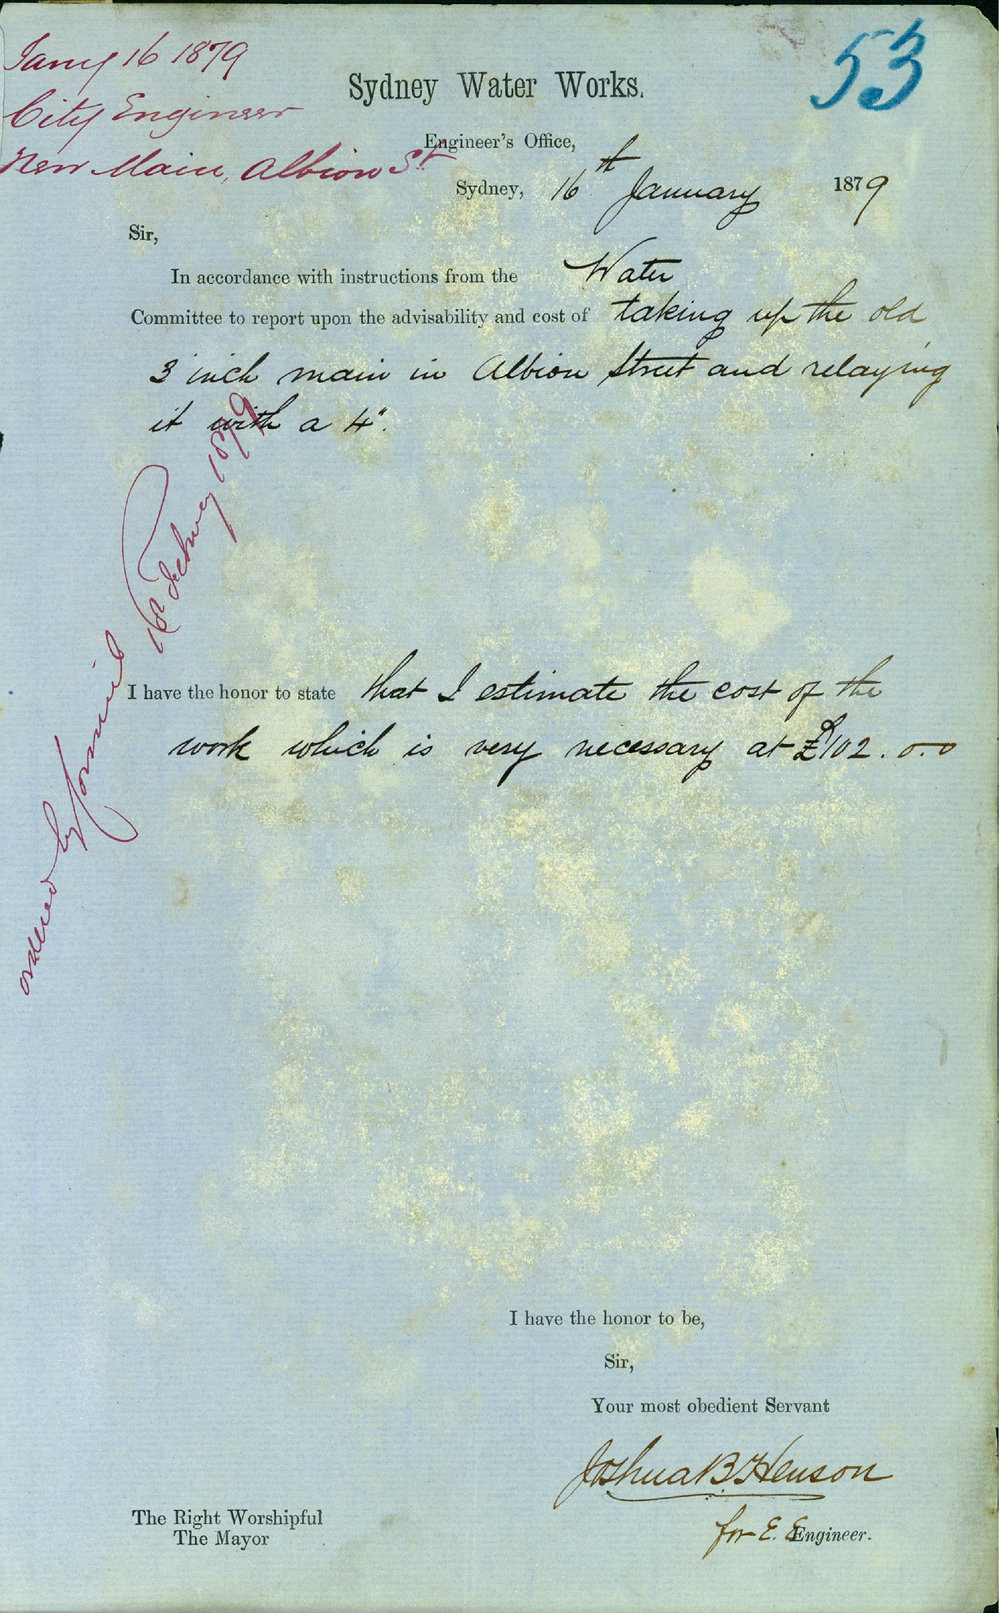 Jany 16 1879
City Engineer
New Main, Albion St
53
Sydney Water Works.
Engineer's Office,
Sydney, 16th January 1879
Sir,
In accordance with instructions from the Water
Committee to report upon the advisability and cost of taking up the old
3 inch main in Albion Street and relaying
it with a 4".
ordered by
1879
I have the honor to state that I estimate the cost of the
work which is very necessary at £102.0.0
I have the honor to be,
Sir,
Your most obedient Servant
Joshua B Henson
for E. E Engineer.
The Right Worshipful
The Mayor